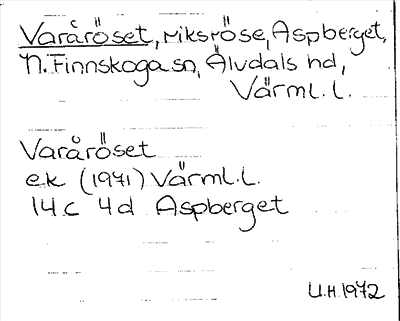 Varåröset, riksröse, Aspberget,
N. Finnskoga sn, Älvdals hd,
Värml. l.
Varåröset
ek (1971) Värml. l.
14c 4d Aspberget
U.H. 1972